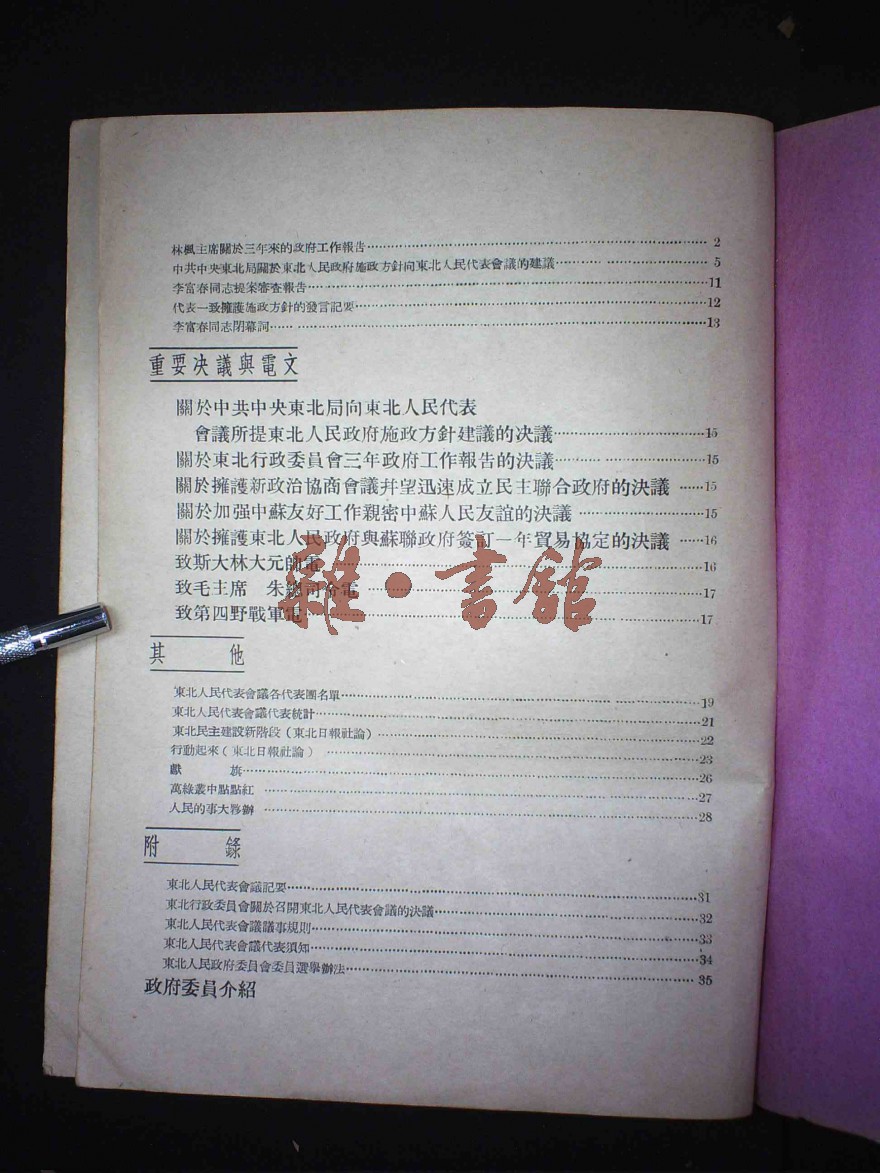 林楓主席關於三年來的政府工作報告……2
中共中央東北局關於東北人民政府施政方針向東北人民代表會議的建議……5
李富春同志提案審查報告……11
代表一致擁護施政方針的發言記要……12
李富春同志閉幕詞……13
重要決議與電文
關於中共中央東北局向東北人民代表
會議所提東北人民政府施政方針建議的決議……15
關於東北行政委員會三年政府工作報告的決議……15
關於擁護新政治協商會議并望迅速成立民主聯合政府的決議……15
關於加强中蘇友好工作親密中蘇人民友誼的決議……15
關於擁護東北人民政府與蘇聯政府簽訂一年貿易協定的決議……16
致斯大林大元帥電……16
致毛主席 朱總司令電……17
致第四野戰軍電……17
雜·書館
其 他
東北人民代表會議各代表團名單……19
東北人民代表會議代表統計……21
東北民主建設新階段（東北日報社論）……22
行動起來（東北日報社論）……23
獻 旗……26
萬綠叢中點點紅……27
人民的事大夥辦……28
附 錄
東北人民代表會議記要……31
東北行政委員會關於召開東北人民代表會議的決議……32
東北人民代表會議議事規則……33
東北人民代表會議代表須知……34
東北人民政府委員會委員選舉辦法……35
政府委員介紹